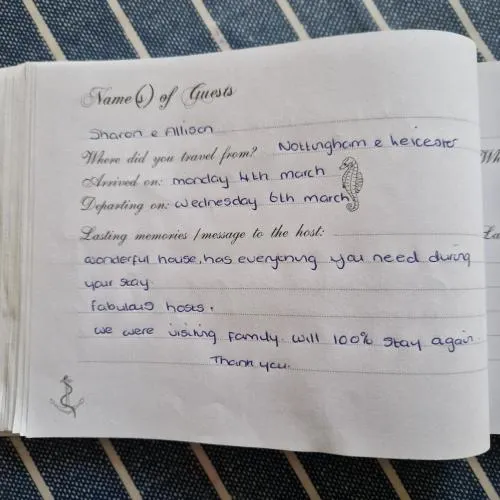 Name(s) of Guests
Sharon e Allison
Where did you travel from? Nottingham e Leicester
Arrived on: monday 4th march
Departing on: Wednesday 6th march
Lasting memories / message to the host:
wonderful house, has everything you need during
your stay.
fabulous hosts.
we were visiting family. will 100% stay again.
Thank you.
Wh
La